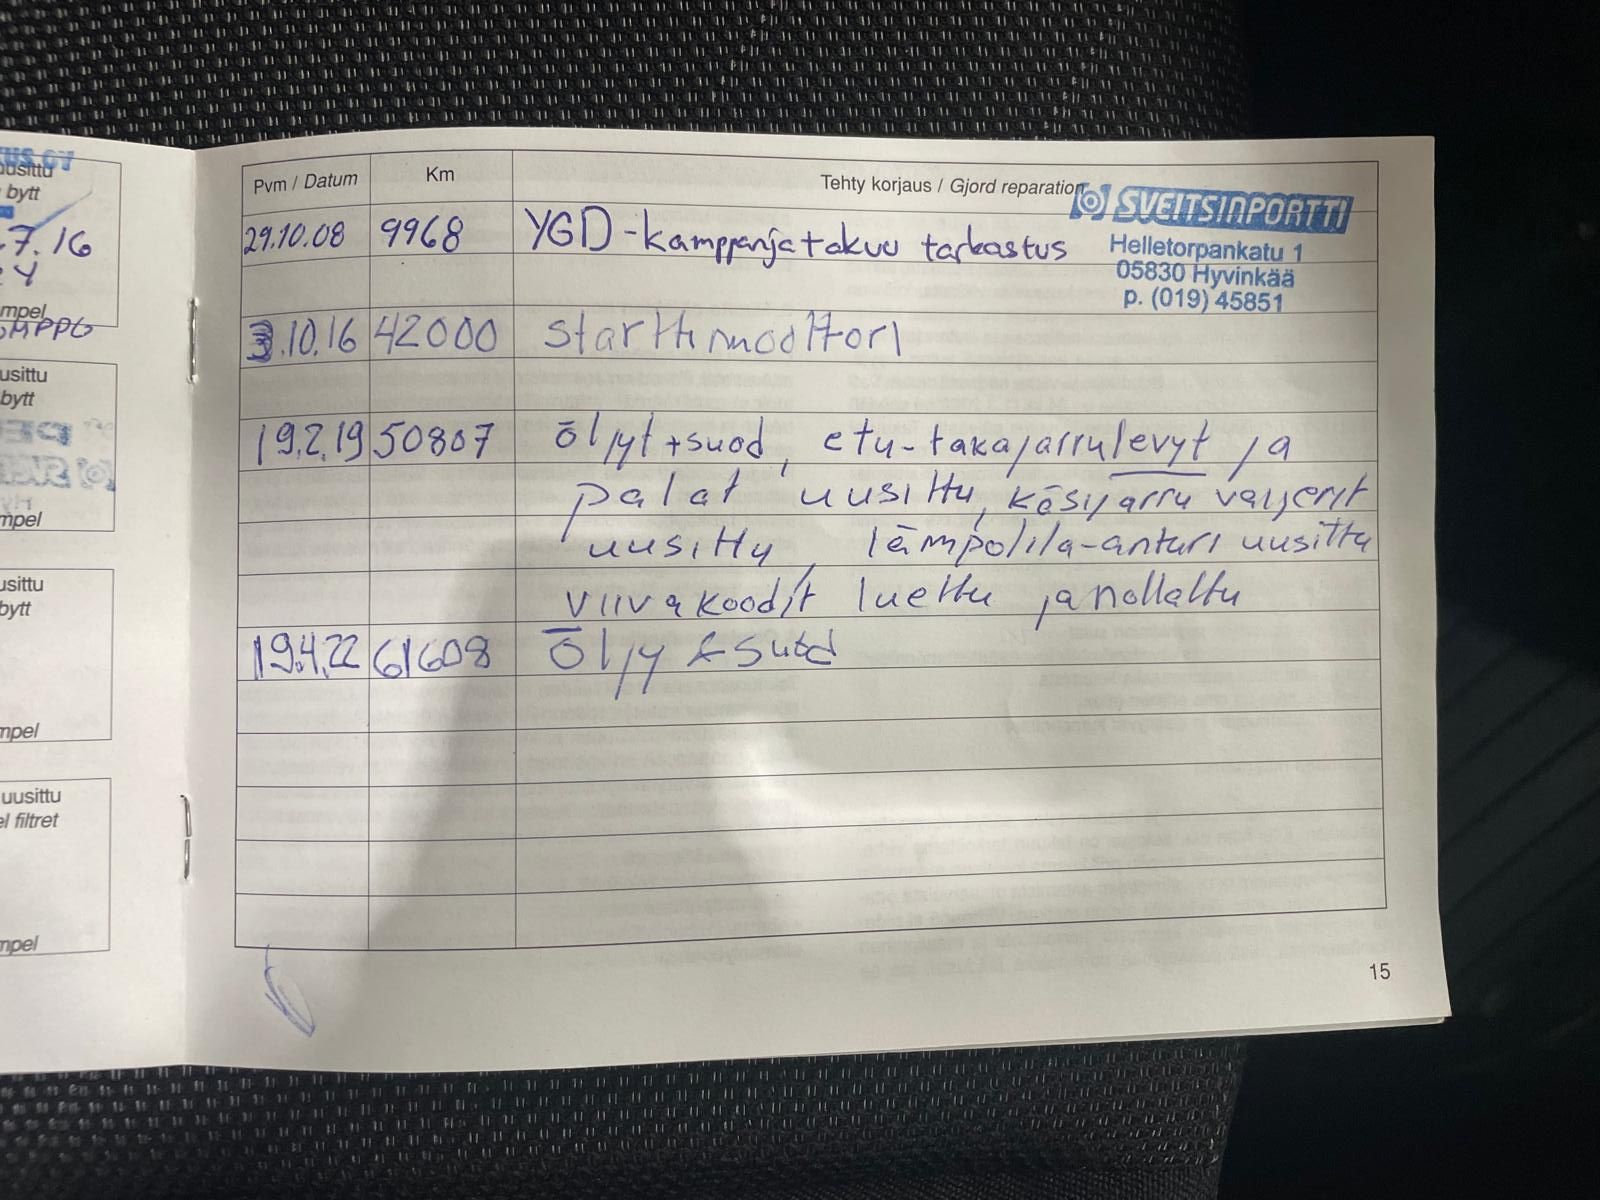 US OY
uusittu
bytt
7.16
mpel
usittu
bytt
mpel
usittu
bytt
mpel
uusittu
el filtret
mpel
Pvm / Datum Km Tehty korjaus / Gjord reparation
SVEITSINPORTTI
Helletorpankatu 1
05830 Hyvinkää
p. (019) 45851
29.10.08 9968 YGD-kamppanjatakuu tarkastus
3.10.16 42000 starttimoottori
19.2.19 50807 öljyt+suod, etu-takajarrulevyt ja
palat uusittu, käsijarru vaijerit
uusittu, lämpölila-anturi uusittu
viivakoodit luettu ja nollattu
19.4.22 61608 öljy & suod
15